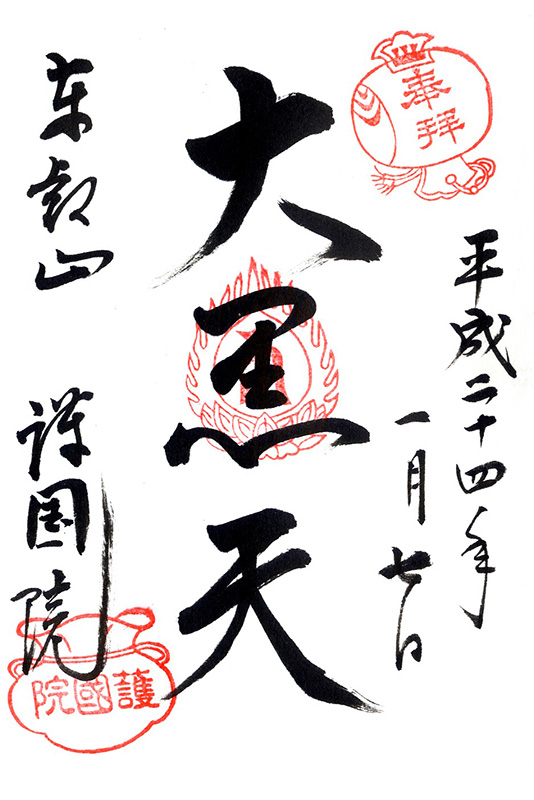 奉拝
平成二十四年
一月七日
大黒天
東叡山 護国院
護國院